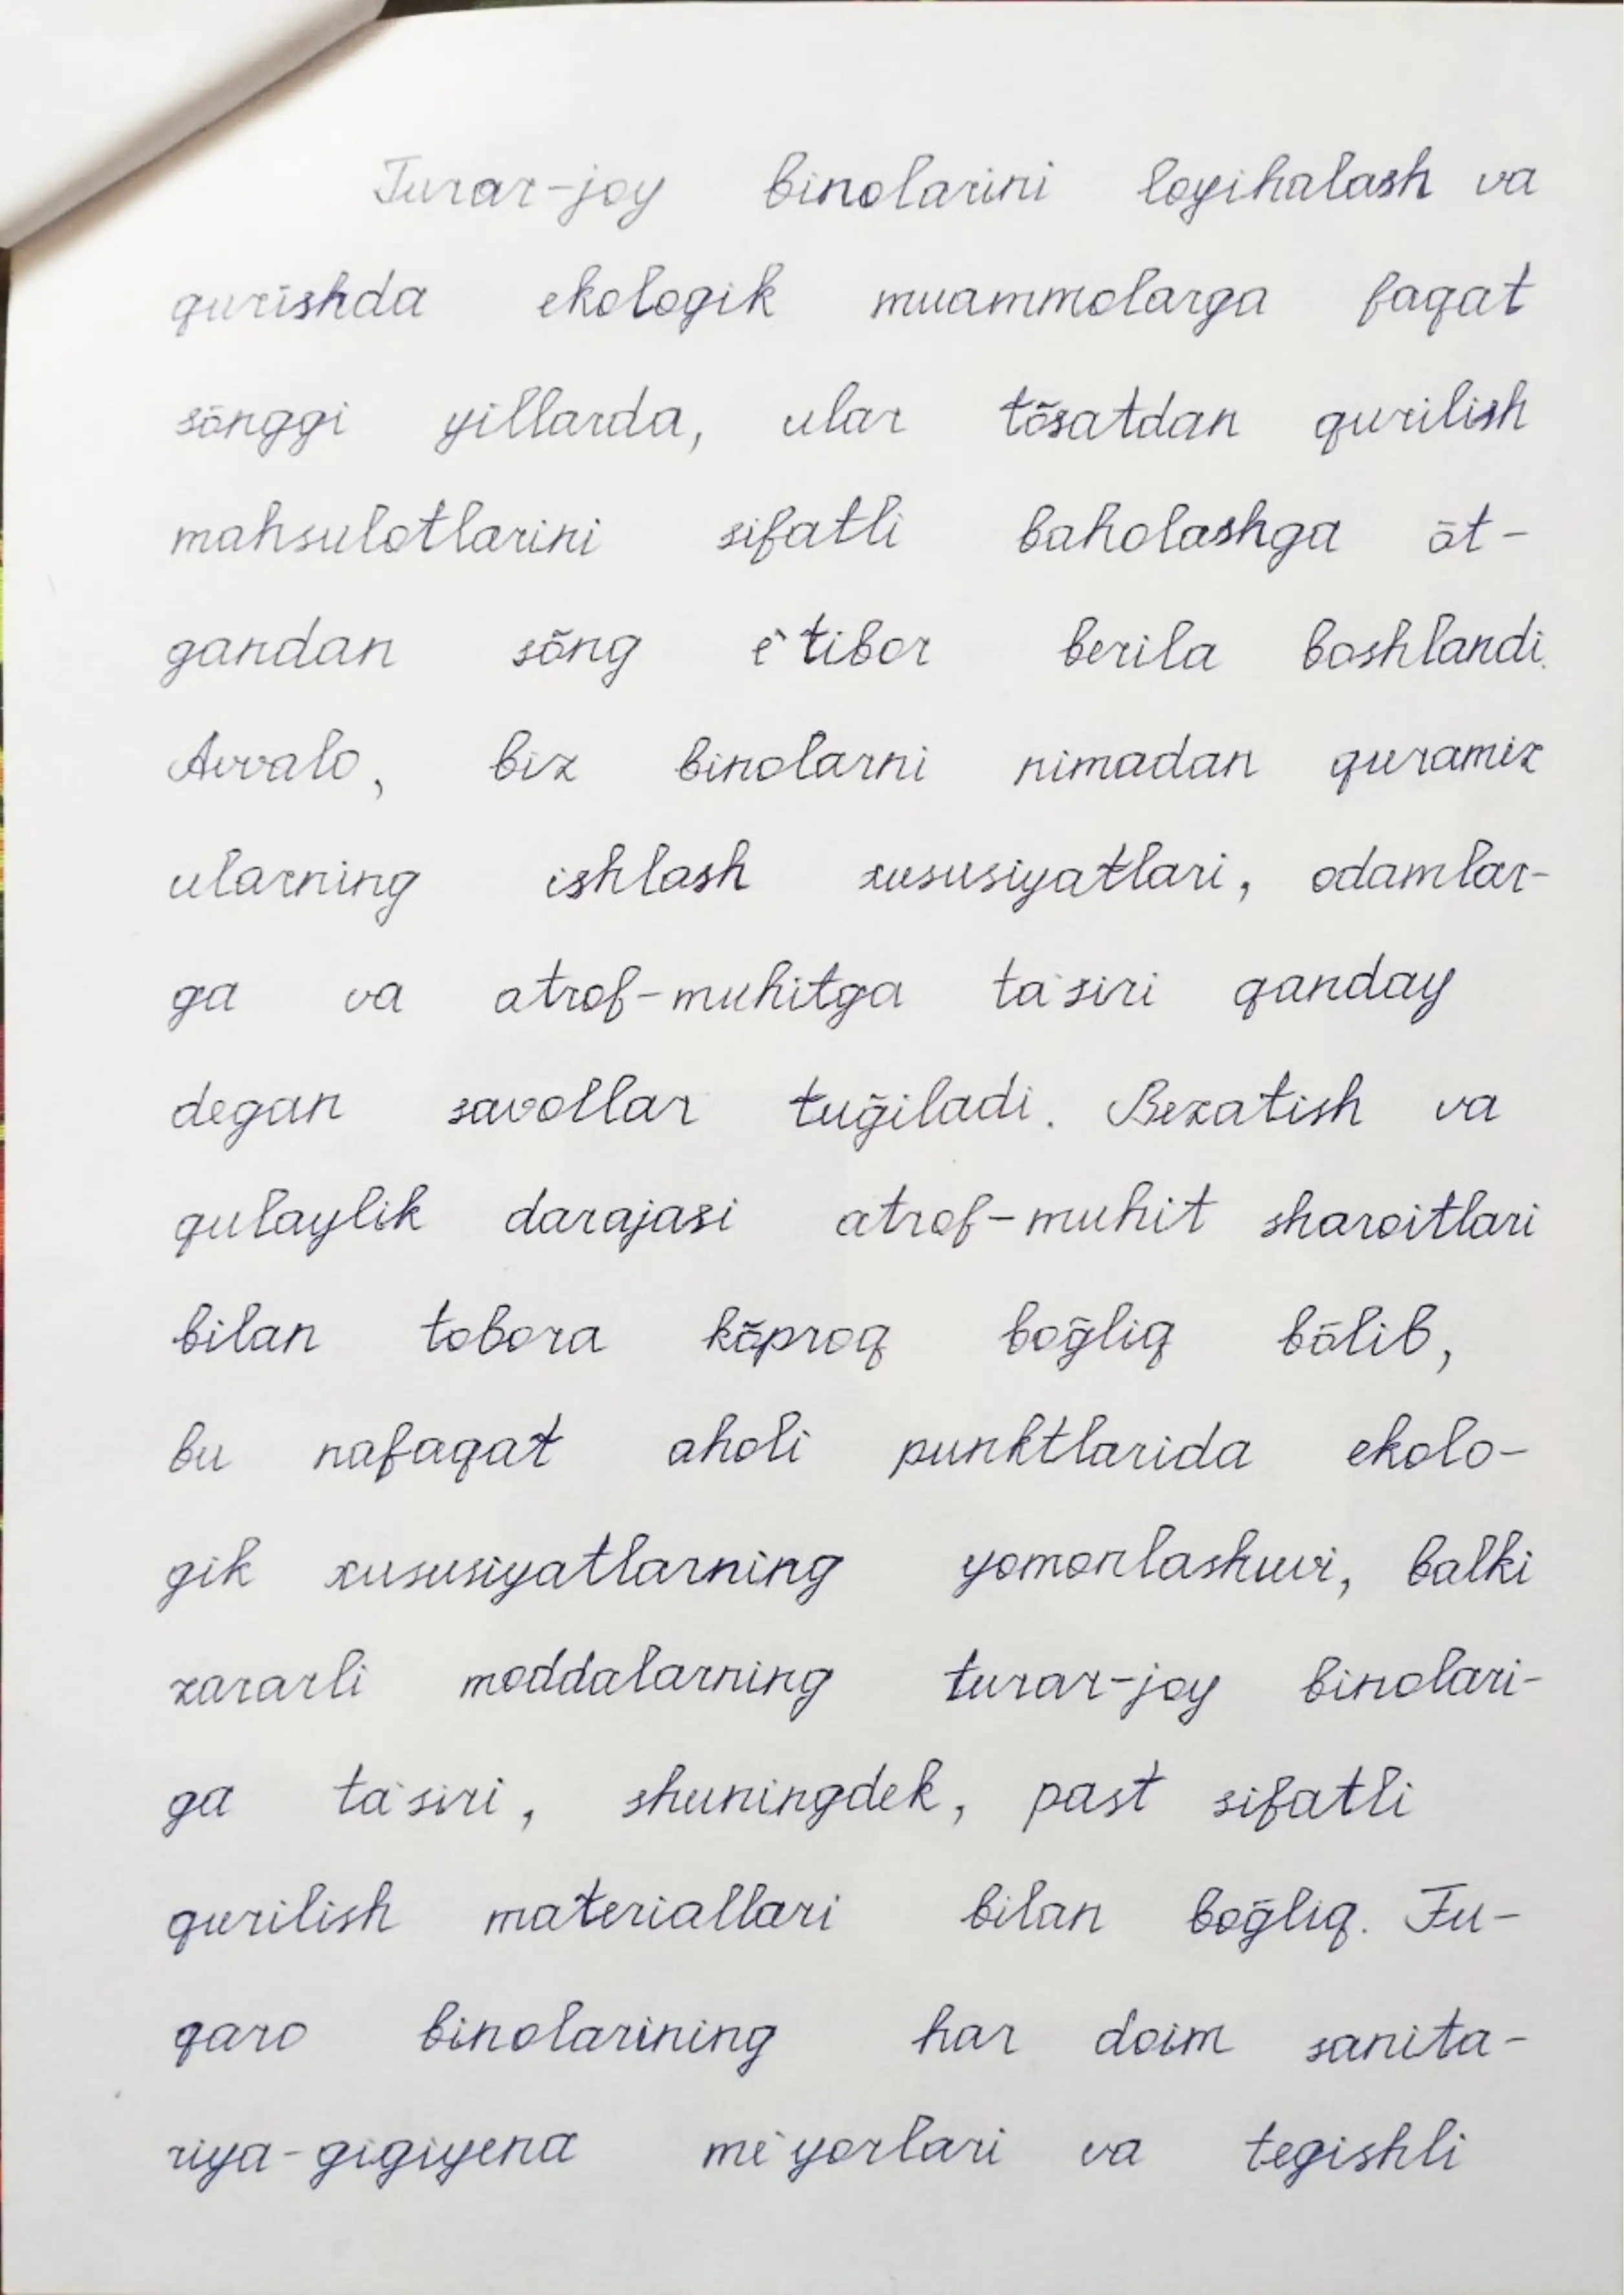 Turar-joy binolarini loyihalash va
qurishda ekologik muammolarga faqat
sõnggi yillarda, ular tõsatdan qurilish
mahsulotlarini sifatli baholashga õt-
gandan sõng e'tibor berila boshlandi.
Avvalo, biz binolarni nimadan quramiz
ularning ishlash xususiyatlari, odamlar-
ga va atrof-muhitga ta'siri qanday
degan savollar tug̃iladi. Bezatish va
qulaylik darajasi atrof-muhit sharoitlari
bilan tobora kõproq bog̃liq bõlib,
bu nafaqat aholi punktlarida ekolo-
gik xususiyatlarning yomonlashuvi, balki
zararli moddalarning turar-joy binolari-
ga ta'siri, shuningdek, past sifatli
qurilish materiallari bilan bog̃liq. Fu-
qaro binolarining har doim sanita-
riya-gigiyena me'yorlari va tegishli